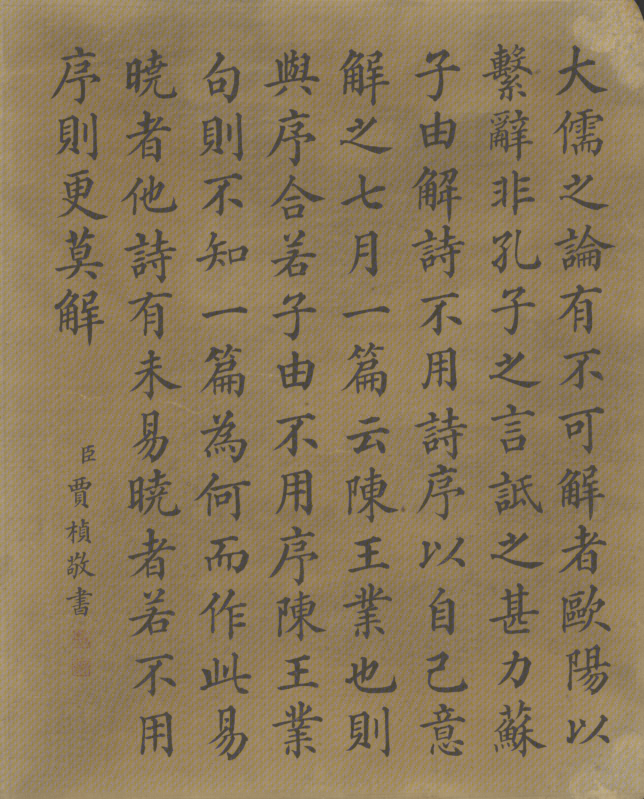 大儒之論有不可解者歐陽以
繫辭非孔子之言詆之甚力蘇
子由解詩不用詩序以自己意
解之七月一篇云陳王業也則
與序合若子由不用序陳王業
句則不知一篇為何而作此易
曉者他詩有未易曉者若不用
序則更莫解
臣賈楨敬書